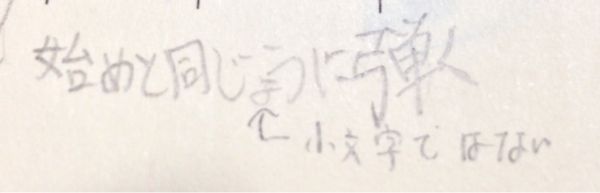 始めと同じように弾く
↑小文字ではない